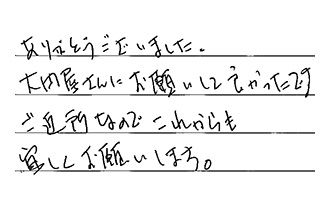 ありがとうございました。
大田屋さんにお願いして良かったです
ご近所なのでこれからも
宜しくお願いします。